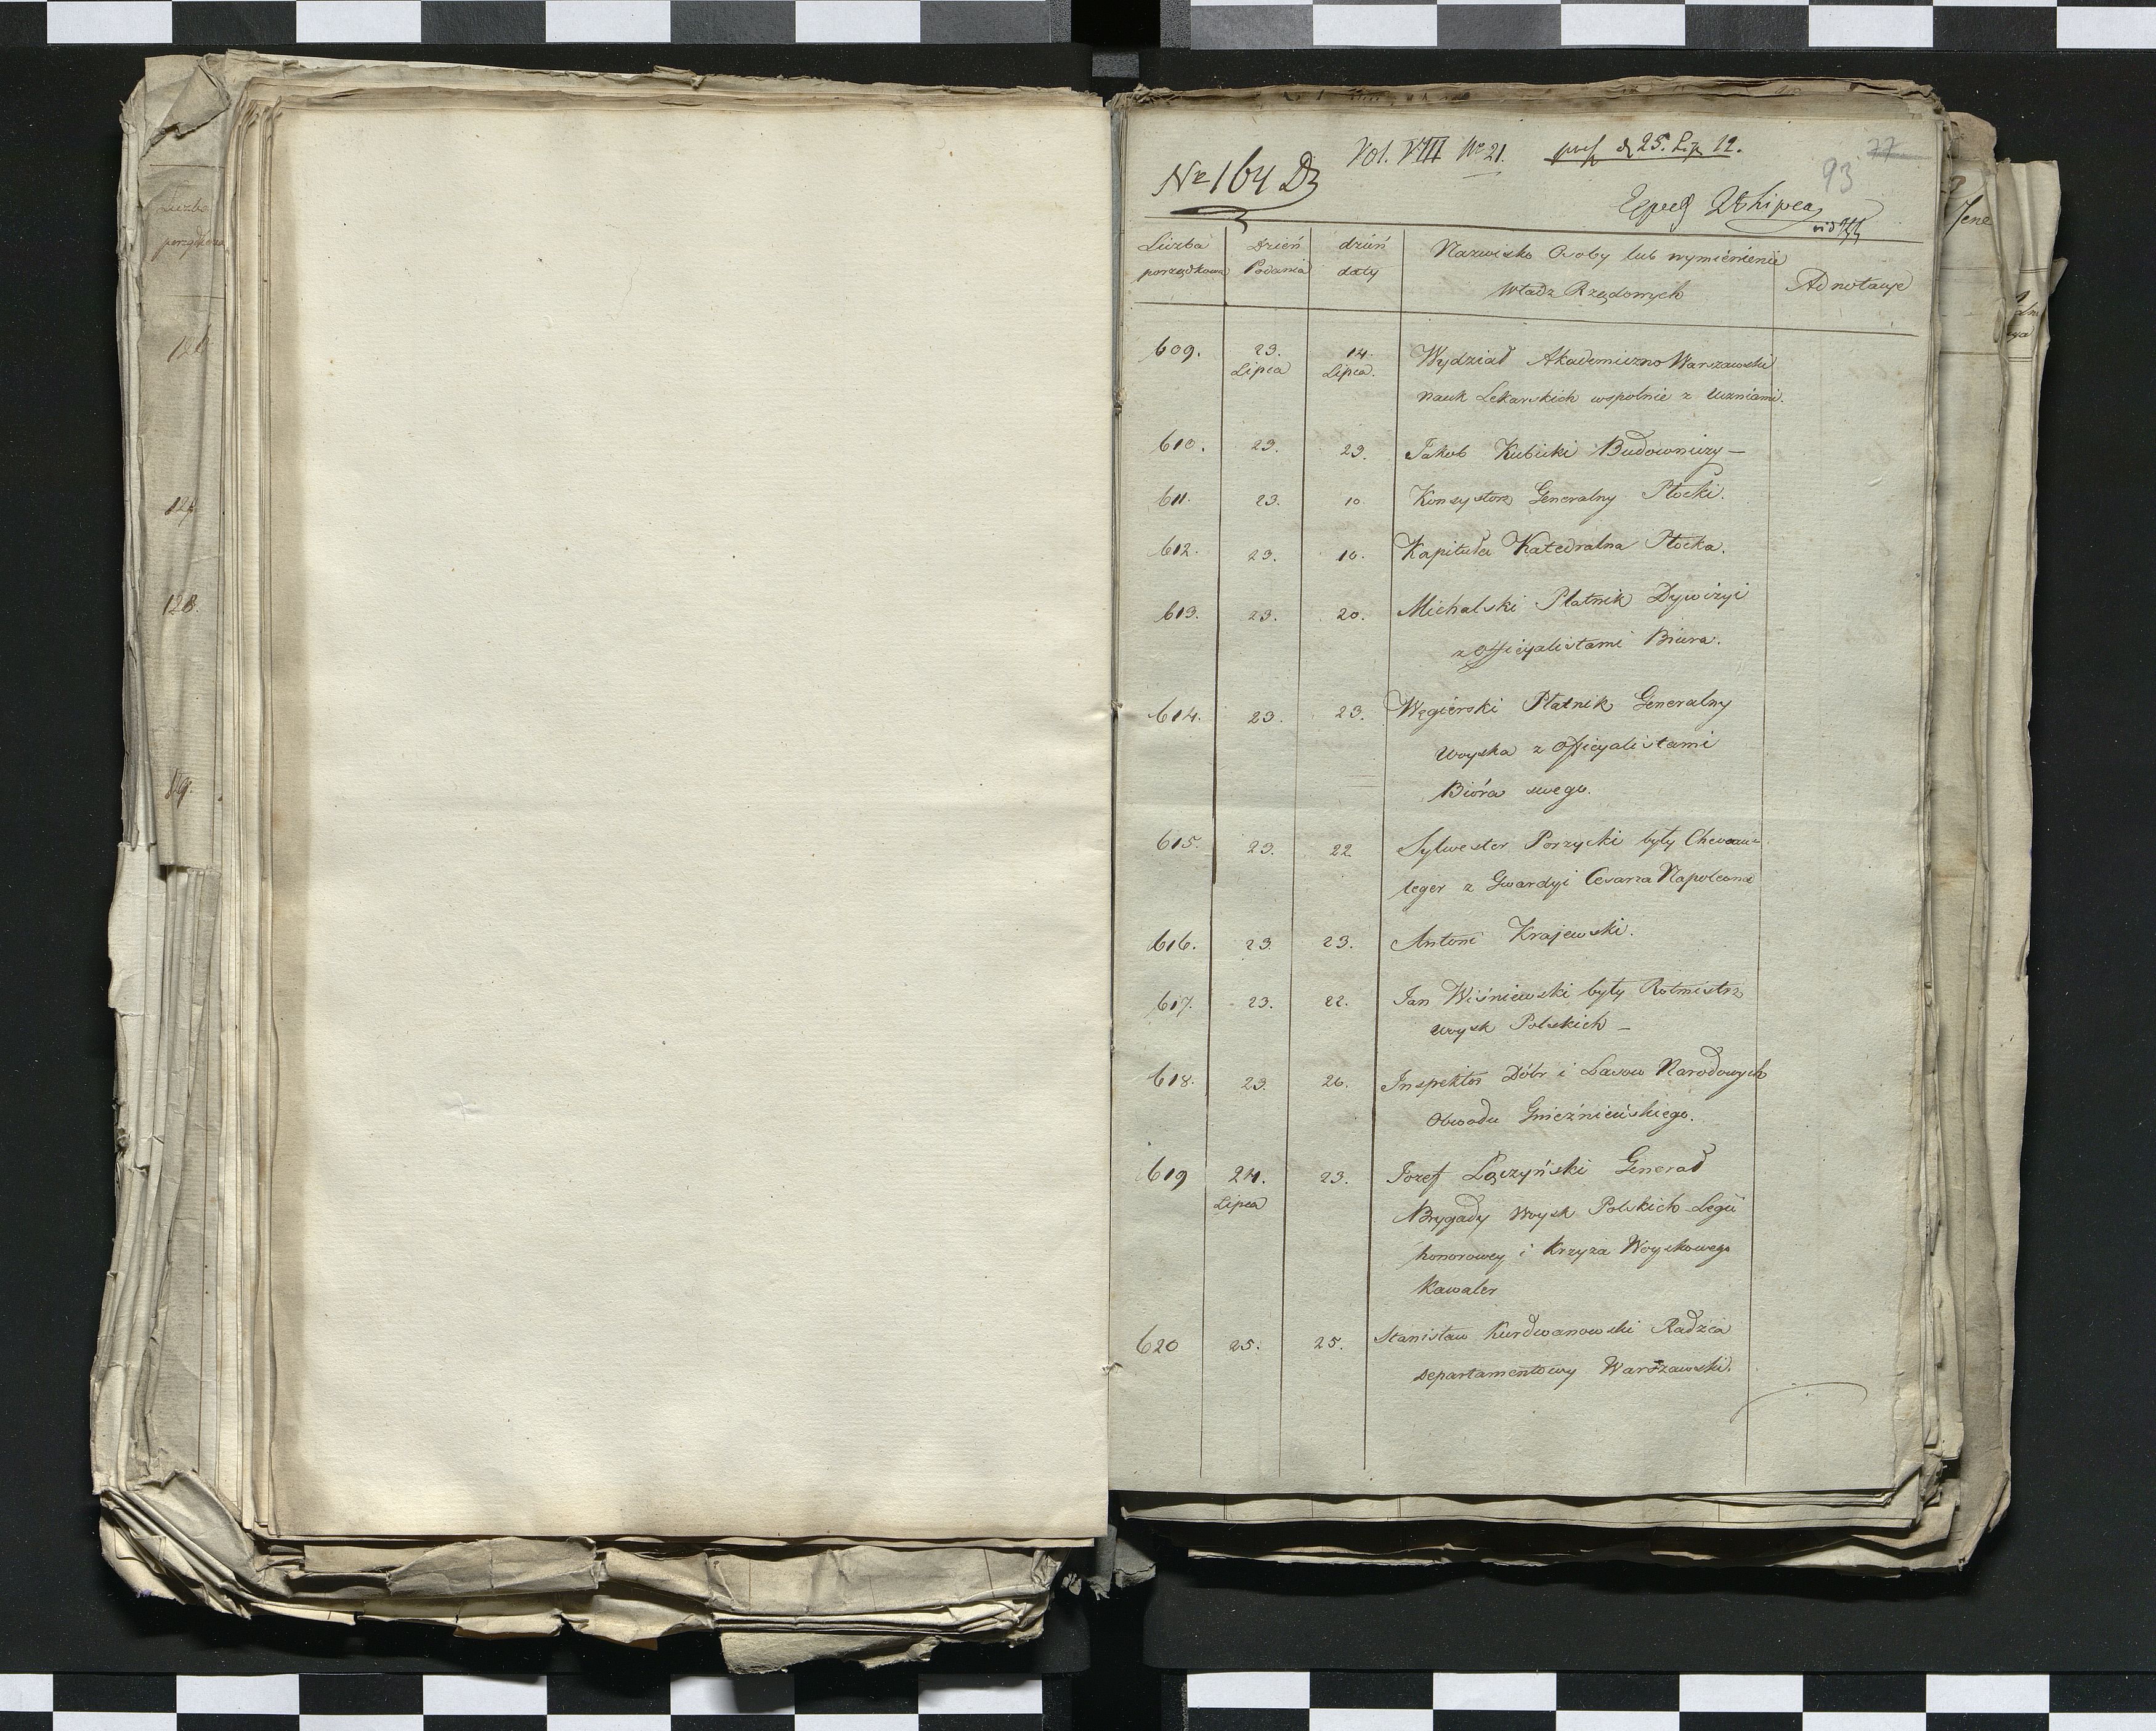 Vol. VIII Nº 21.
25. Lip. 12.
93 77
Nr 164 Dz
Liczba porządkowa
Dzień Podania
dzień daty
Nazwisko Osoby lub wymiénienie
Władz Rządowych
Adnotacye
609. 23. Lipca 14. Lipca. Wydział Akademiczno Warszawski
nauk Lekarskich wspolnie z Uczniami.
610. 23. 23. Jakob Kubicki Budowniczy –
611. 23. 10. Konsystorz Generalny Płocki.
612. 23. 10. Kapituła Katedralna Płocka.
613. 23. 20. Michalski Płatnik Dywizyi
z Officyalistami Biura.
614. 23. 23. Węgiérski Płatnik Generalny
woyska z Officyalistami
Bióra swego.
615. 23. 22. Sylwester Porzycki były Chevaux
leger z Gwardyi Cesarza Napoleona
616. 23. 23. Antoni Krajewski.
617. 23. 22. Jan Wiśniewski były Rotmistrz
woysk Polskich –
618. 23. 20. Inspektor Dóbr i Lasow Narodowych
Obwodu Gnieźnieńskiego.
619 24. Lipca 23. Jozef Łączyński Generał
Brygady Woysk Polskich Legii
honorowey i Krzyża Woyskowego
Kawaler
620 25. 25. Stanisław Kurdwanowski Radzca
Departamentowy Warszawski.
Liczba
porządkowa
128.